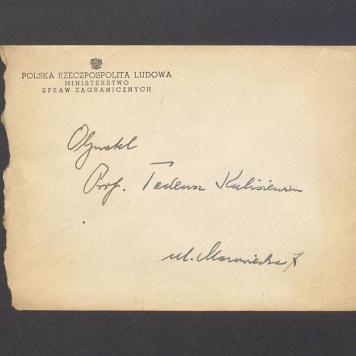 POLSKA RZECZPOSPOLITA LUDOWA
MINISTERSTWO
SPRAW ZAGRANICZNYCH
Obywatel
Prof. Tadeusz Kulisiewicz
ul. Mazowiecka 7